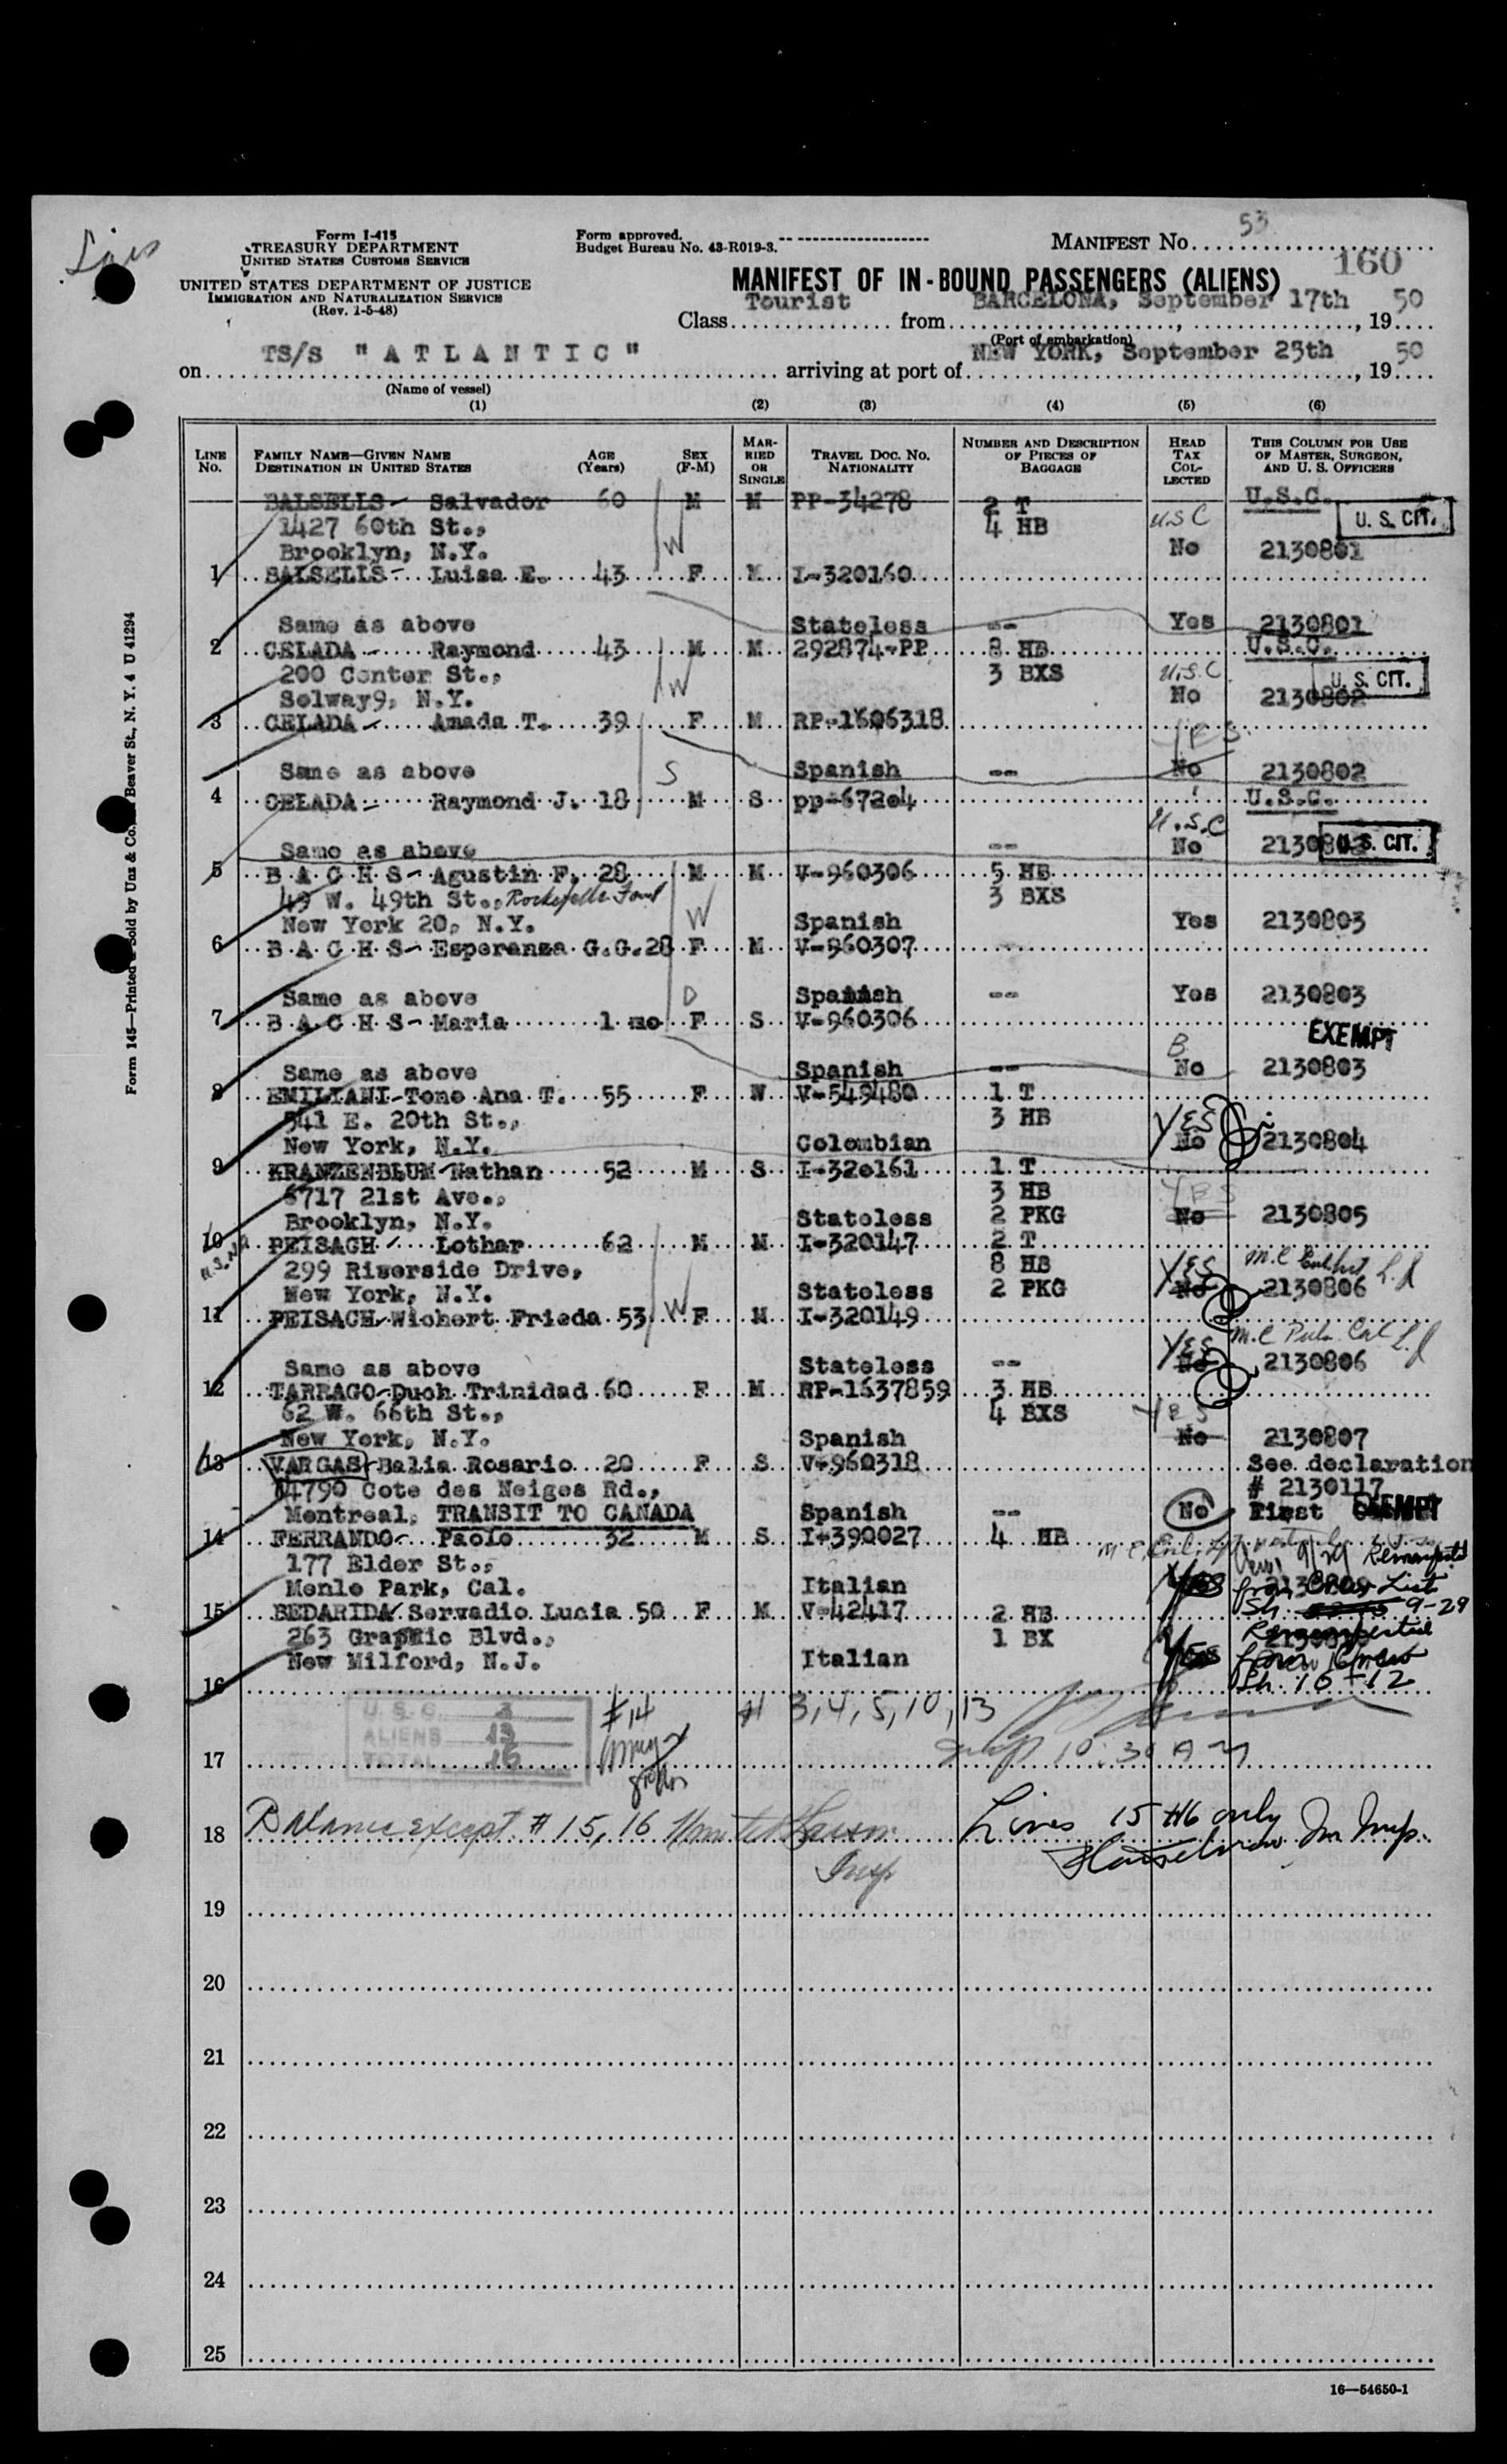 Form I-415
TREASURY DEPARTMENT
UNITED STATES CUSTOMS SERVICE
UNITED STATES DEPARTMENT OF JUSTICE
IMMIGRATION AND NATURALIZATION SERVICE
(Rev. 1-5-48)
Form approved.
Budget Bureau No. 43-R019-3.
MANIFEST No. 53
160
MANIFEST OF IN-BOUND PASSENGERS (ALIENS)
Class Tourist from BARCELONA, September 17th, 1950
(Port of embarkation)
on TS/S "ATLANTIC" arriving at port of NEW YORK, September 25th, 1950
(Name of vessel)
(1) (2) (3) (4) (5) (6)
LINE No. FAMILY NAME—GIVEN NAME DESTINATION IN UNITED STATES AGE (Years) SEX (F-M) MARRIED OR SINGLE TRAVEL DOC. NO. NATIONALITY NUMBER AND DESCRIPTION OF PIECES OF BAGGAGE HEAD TAX COLLECTED THIS COLUMN FOR USE OF MASTER, SURGEON, AND U. S. OFFICERS
BALSELLS- Salvador 60 M M PP-34278 2 T U.S.C.
1427 60th St., 4 HB USC U. S. CIT.
Brooklyn, N.Y. W No 2130801
1 BALSELLS- Luisa E. 43 F M I-320160
Same as above Stateless -- Yes 2130801
2 CELADA - Raymond 43 M M 292874-PP 8 HB U.S.C.
200 Center St., W 3 BXS U.S.C. U. S. CIT.
Solway9, N.Y. No 2130802
3 CELADA - Amada T. 39 F M RP-1606318
YES
Same as above S Spanish -- No 2130802
4 CELADA - Raymond J. 18 M S pp-672o4 U.S.C.
U.S.C
Same as above -- No U. S. CIT.
5 B A C H S- Agustin F. 28 M M V-960306 5 HB
49 W. 49th St., 3 BXS
New York 20, N.Y. W Spanish Yes 2130803
6 B A C H S- Esperanza G.G. 28 F M V-960307
Same as above D Spanish -- Yes 2130803
7 B A C H S- Maria 1 mo F S V-960306
EXEMPT
Same as above Spanish -- B No 2130803
8 EMILIANI-Tono Ana T. 55 F V-549480 1 T
541 E. 20th St., 3 HB YES
New York, N.Y. Colombian No 2130804
9 KRANZENBLUM-Nathan 52 M S I-32o161 1 T
6717 21st Ave., 3 HB YES
Brooklyn, N.Y. Stateless 2 PKG No 2130805
10 PEISACH - Lothar 62 M M I-320147 2 T
299 Riverside Drive, 8 HB YES
New York, N.Y. Stateless 2 PKG No 2130806
11 PEISACH-Wichert Frieda 53 W F M I-320149
YES
Same as above Stateless -- No 2130806
12 TARRAGO-Duch Trinidad 60 F M RP-1637859 3 HB
62 W. 66th St., 4 BXS YES
New York, N.Y. Spanish No 2130807
13 VARGAS-Balia Rosario 20 F S V-960318 See declaration
4790 Cote des Neiges Rd., # 2130117
Montreal, TRANSIT TO CANADA Spanish -- No First EXEMPT
14 FERRANDO- Paolo 32 M S I-390027 4 HB
177 Elder St., Remanifested
Menlo Park, Cal. Italian Yes from Crew List
15 BEDARIDA-Servadio Lucia 50 F M V-42417 2 HB Sh. 9-29
263 Graphic Blvd., 1 BX Remanifested
New Milford, N.J. Italian Yes from Crew
16 Sh. 10-12
U.S.C. 3
ALIENS 13
TOTAL 16
#14 #1 3, 4, 5, 10, 13
17 Insp 10:30 AM
18 Balance except # 15, 16 Insp
Lines 15 +16 only
Im Insp.
19
20
21
22
23
24
25
16—54650-1
Form 145—Printed Sold by Unz & Co. Beaver St., N. Y. 4 U 41294